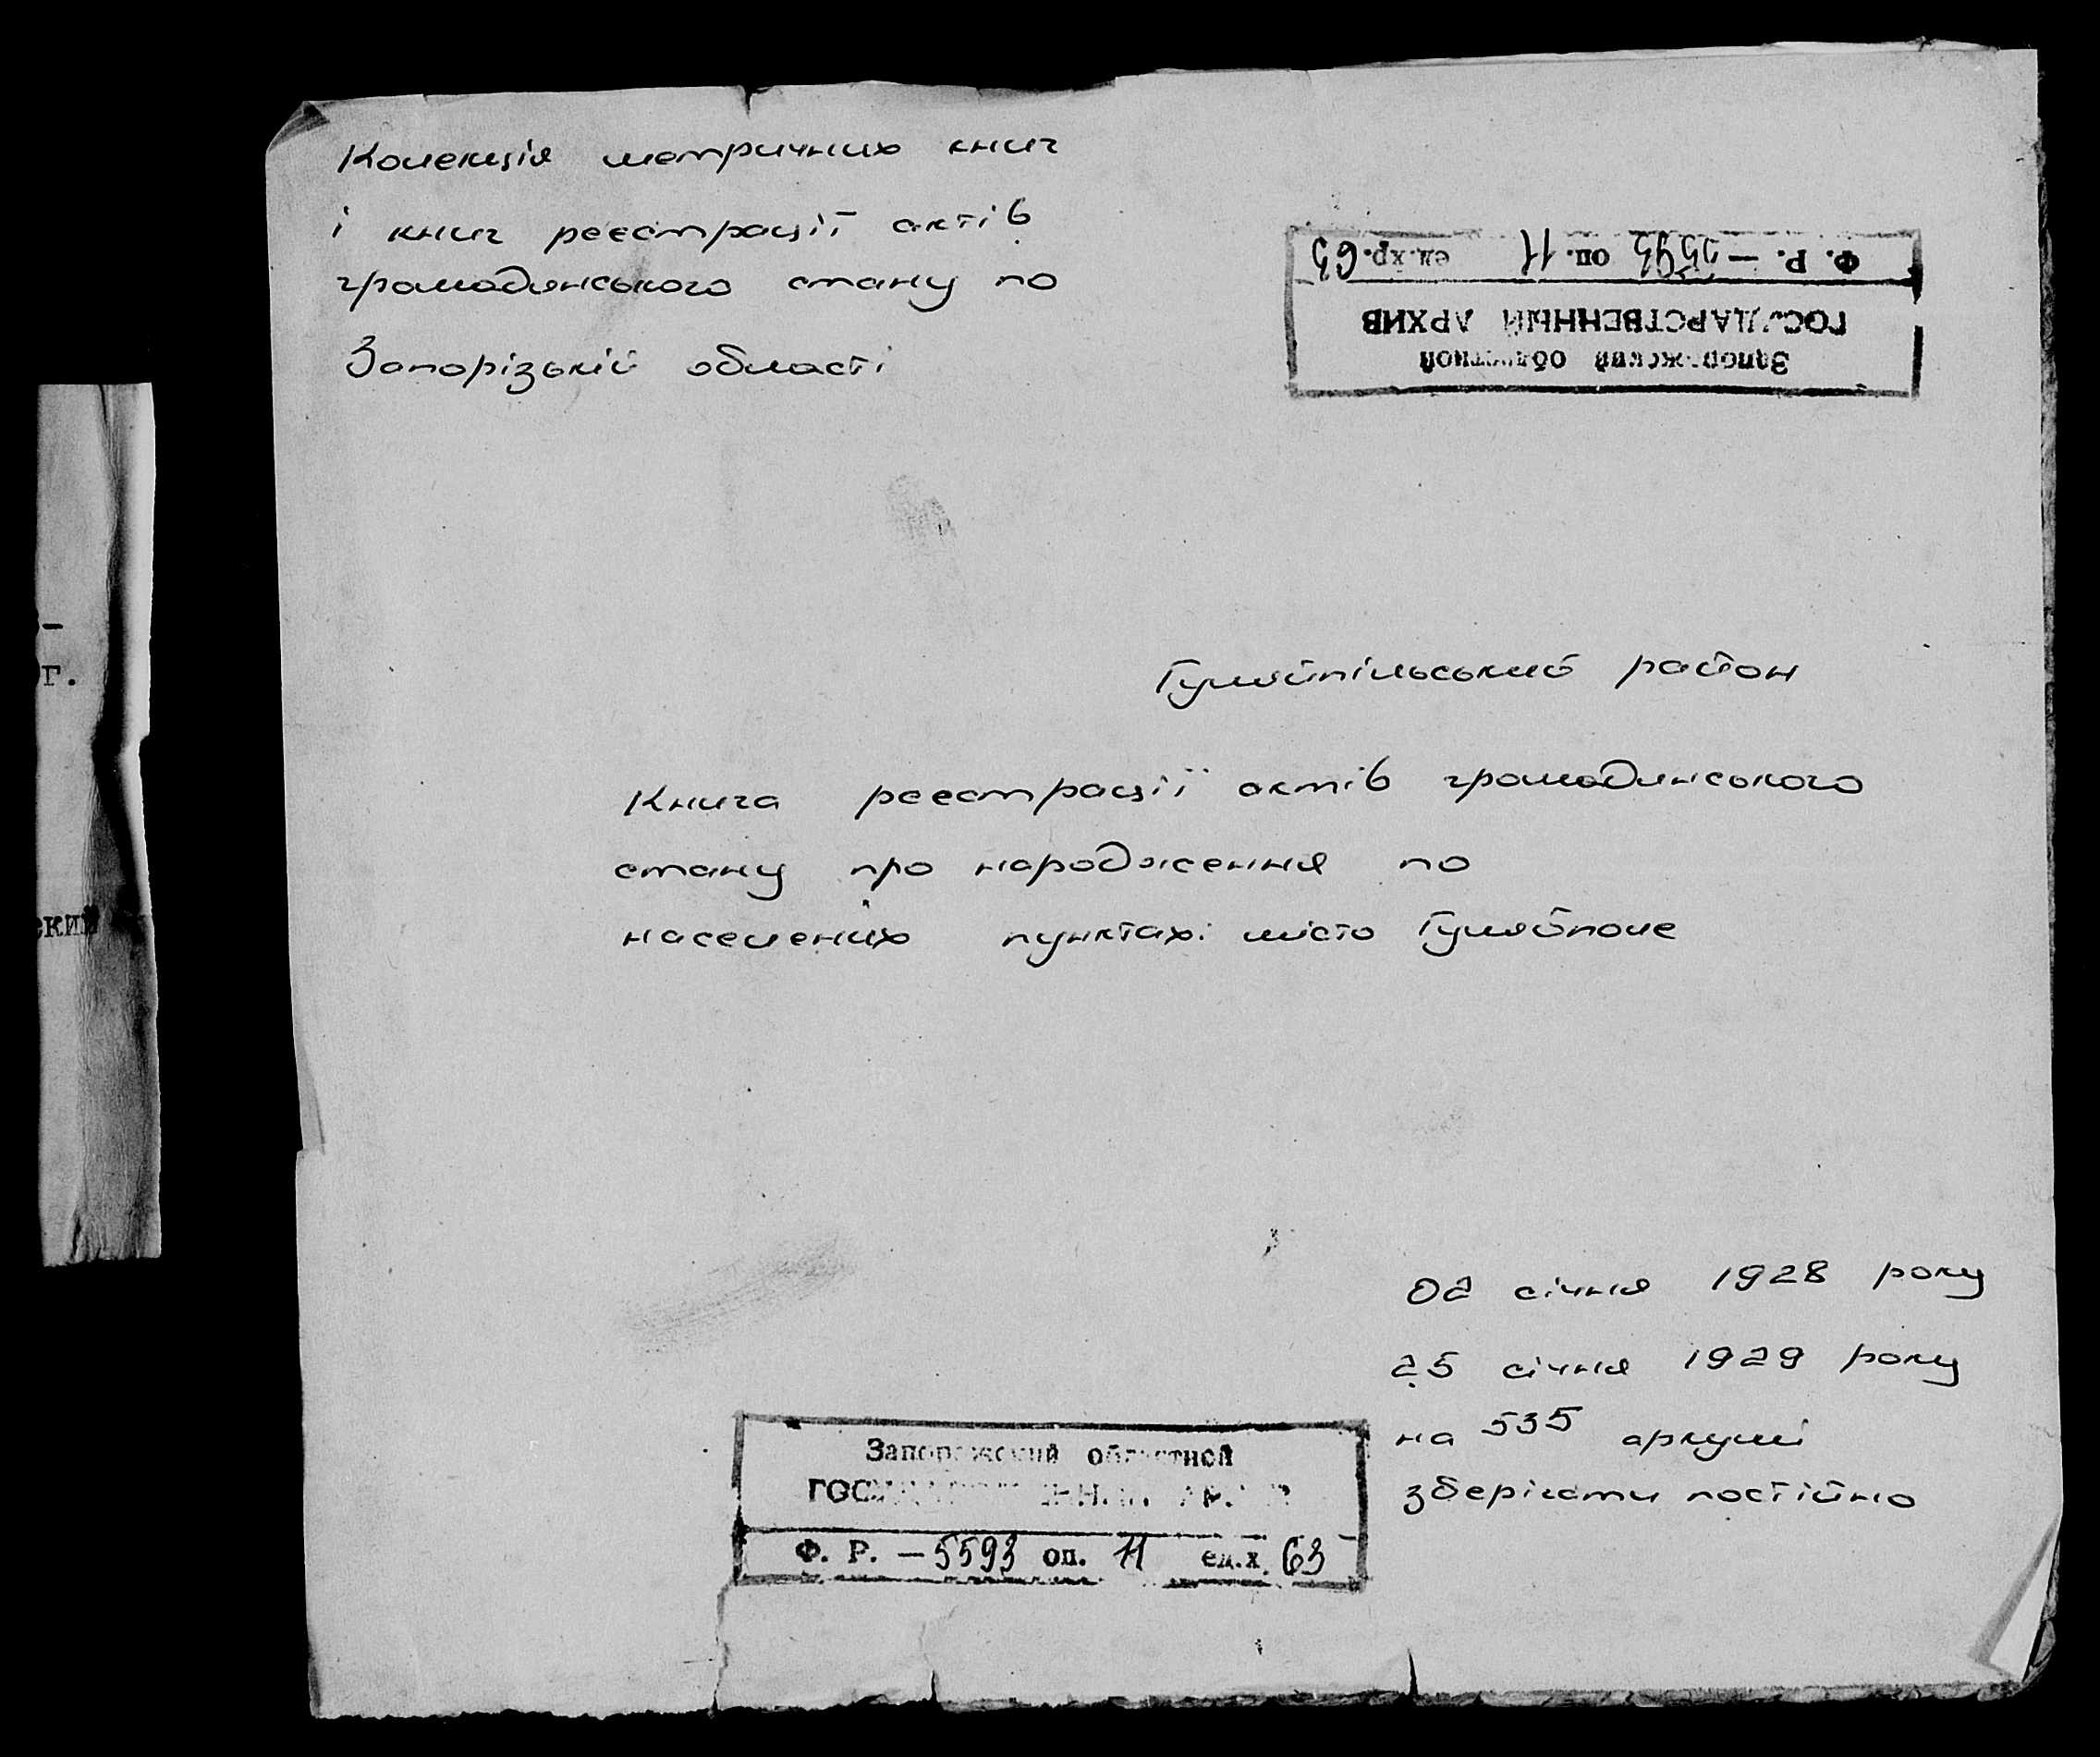 Колекція метричних книг
і книг реєстрації актів
громадянського стану по
Запорізькій області
Ф. Р. — 5593 оп. 11 ед.хр. 63
ГОСУДАРСТВЕННЫЙ АРХИВ
Запорожский областной
-
г.
ский
Гуляйпільський район
Книга реєстрації актів громадянського
стану про народження по
населених пунктах: місто Гуляйполе
02 січня 1928 року
25 січня 1929 року
на 535 аркуші
зберігати постійно
Запорожский областной
ГОСУДАРСТВЕННЫЙ АРХИВ
Ф. Р. — 5593 оп. 11 ед.х. 63